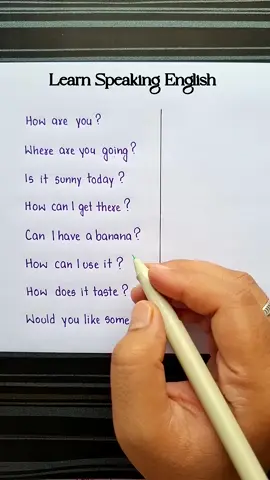 Learn Speaking English
How are you?
Where are you going?
Is it sunny today?
How can I get there?
Can I have a banana?
How can I use it?
How does it taste?
Would you like some